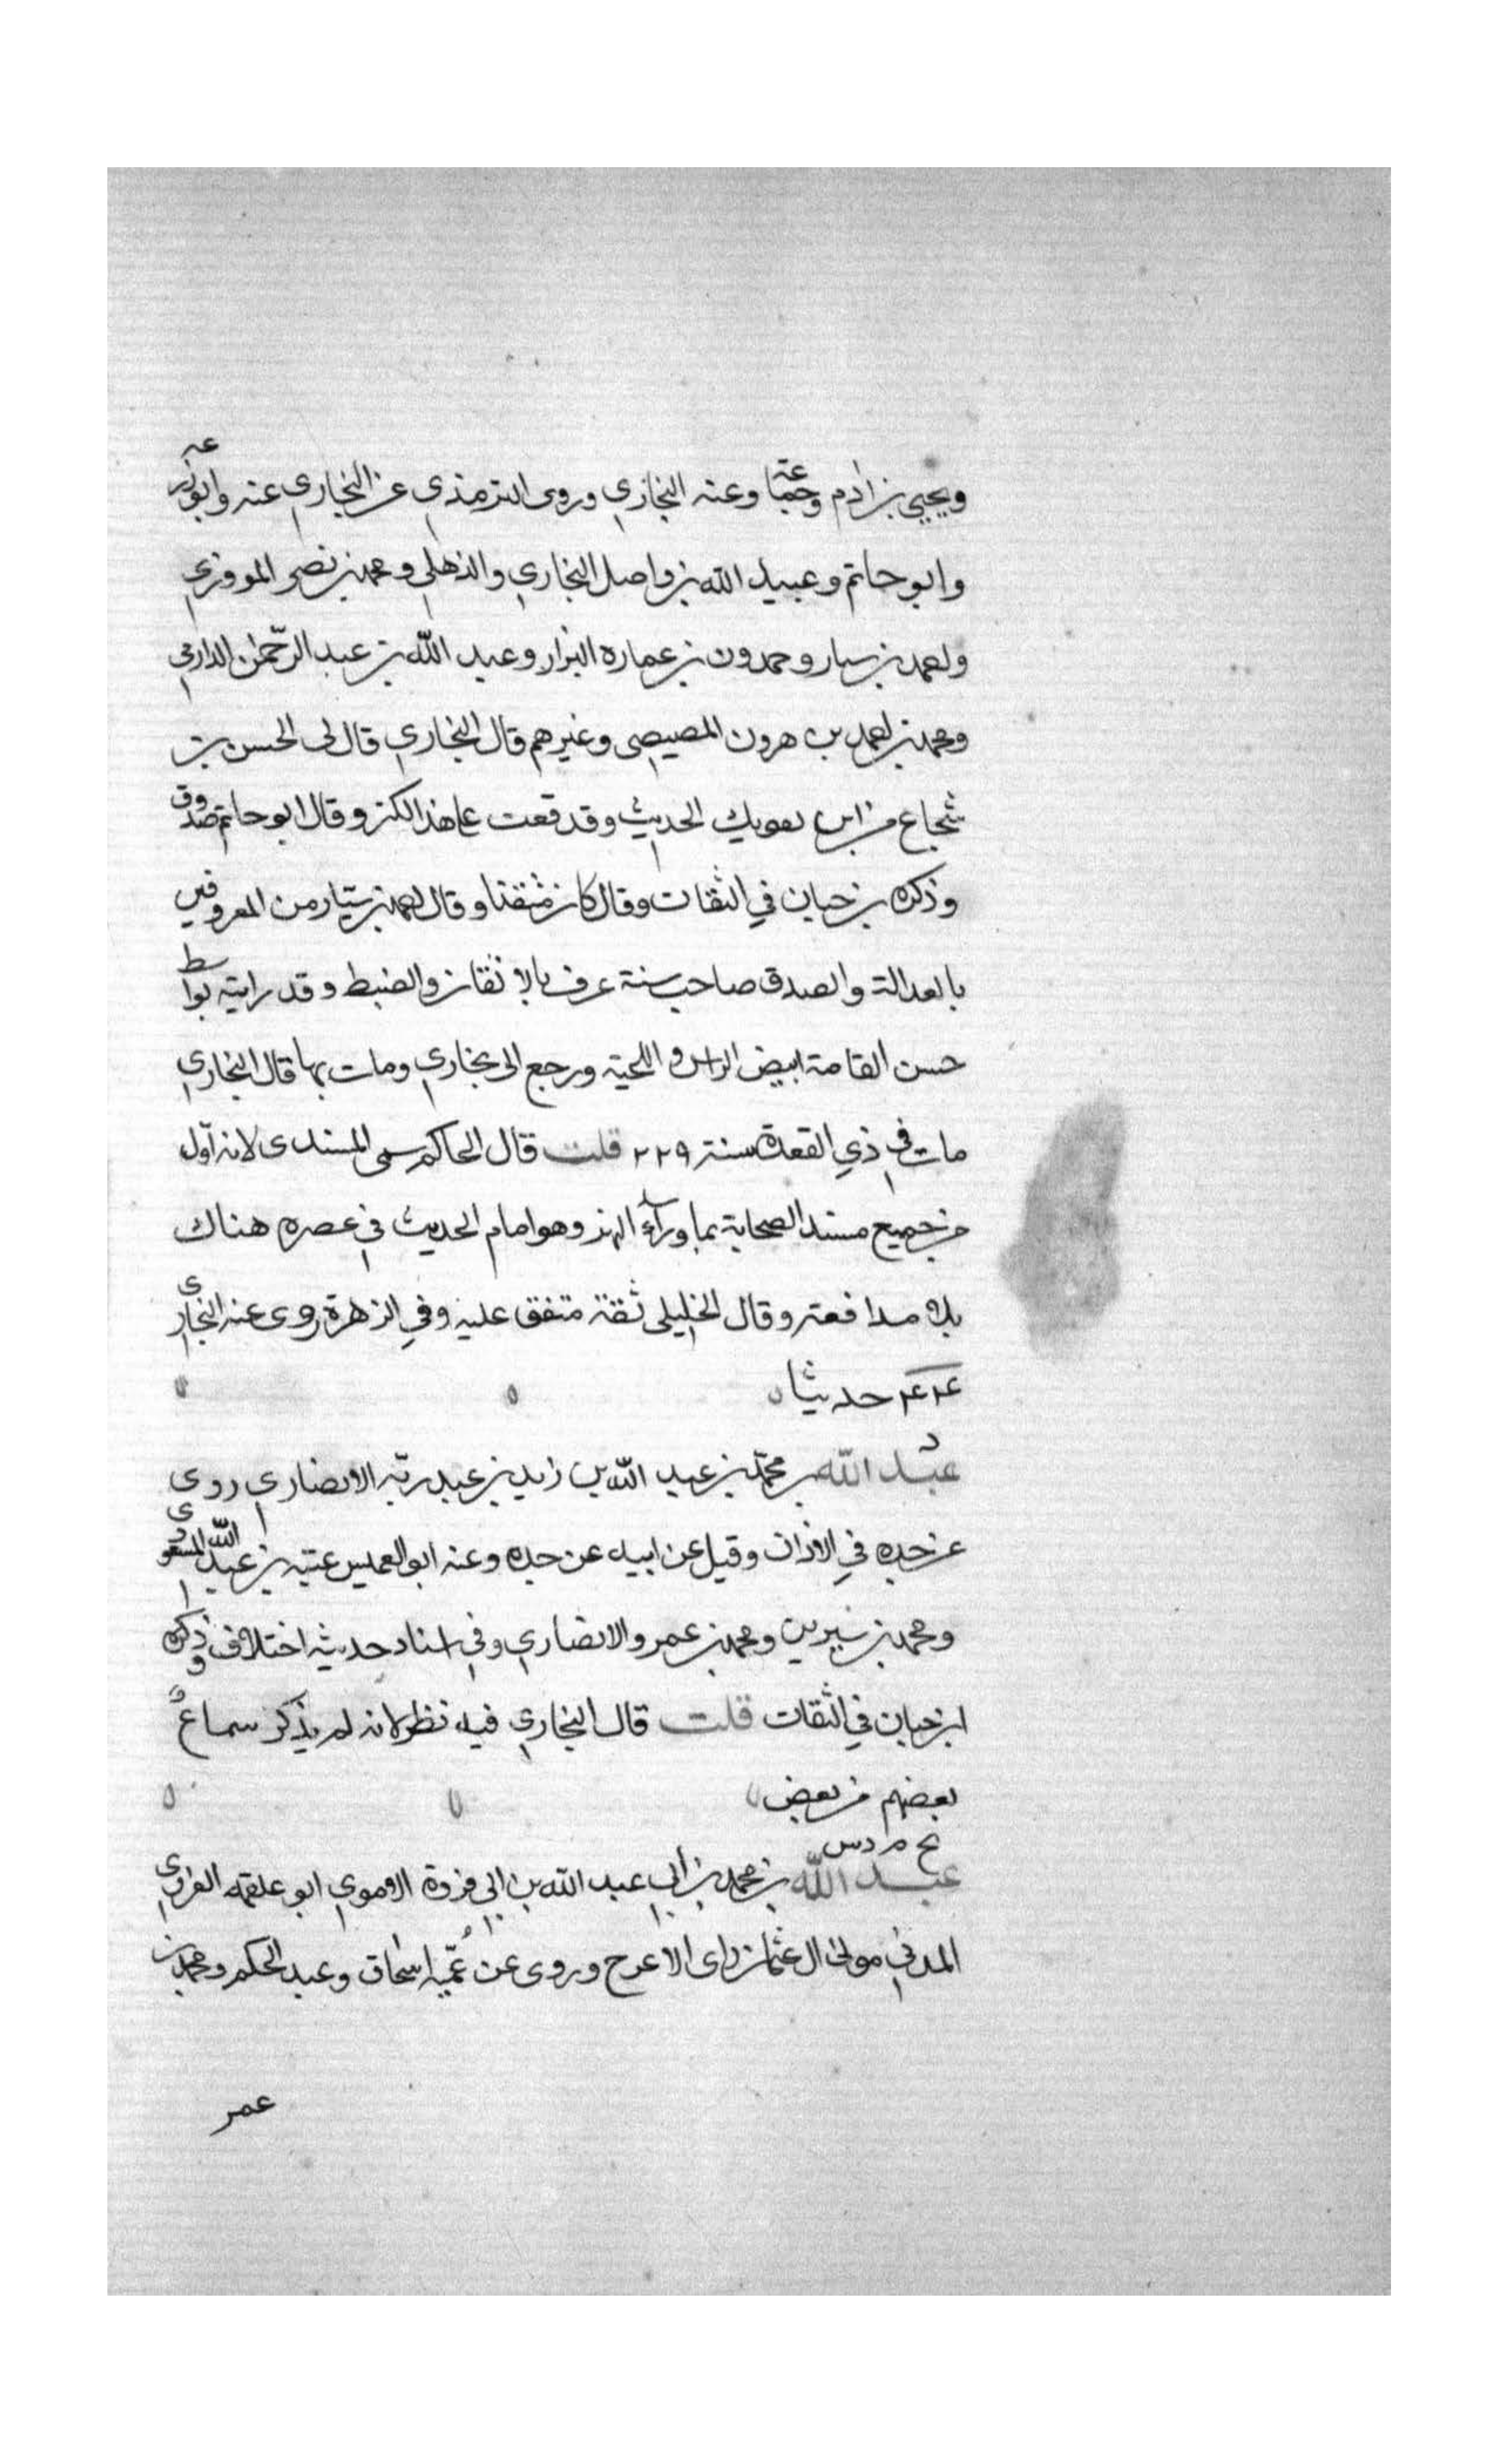 ويحيى بن ادم وجماعة وعنه البخاري وروى الترمذي عن البخاري عنه وابو زرعة
وابو حاتم وعبيد الله بن واصل البخاري والذهلي ومحمد بن نصر المروزي
واحمد بن سيار وحمدون بن عماره البزار وعبد الله بن عبد الرحمن الدارمي
ومحمد بن احمد بن هرون المصيصى وغيرهم قال البخاري قال لى الحسن بن
شجاع من اين يفوتك الحديث وقد وقعت على هذا الكنز وقال ابو حاتم صدوق
وذكره بن حبان في الثقات وقال كان متقنا وقال احمد بن سيّار من المعروفين
بالعدالة والصدق صاحب سنة عرف بالاتقان والضبط وقد رايته بواسط
حسن القامة ابيض الراس واللحية ورجع الى بخاري ومات بها قال البخاري
مات في ذي القعدة سنة ٢٢٩ قلت قال الحاكم سمى المسندى لانه اول
من جميع مسند الصحابة بما ورآء النهر وهو امام الحديث في عصره هناك
بلا مدافعة وقال الخليلى ثقة متفق عليه وفي الزهرة روى عنه البخاري
٤٤ حديثا
د
عبد الله بن محمّد بن عبد الله بن زيد بن عبد ربّه الانصاري روى
عن جده في الاذان وقيل عن ابيه عن جده وعنه ابو العميس عتبه بن عبد الله المسعودي
ومحمد بن سيرين ومحمد بن عمرو الانصاري وفي اسناد حديثه اختلاف وذكره
ابن حبان في الثقات قلت قال البخاري فيه نظر لانه لم يذكر سماعُ
بعضهم من بعض
بخ م د س
عبد الله بن محمد بن أبي عبد الله بن ابي فروة الاموي ابو علقمه الفروي
المدني مولى ال عثمان راى الاعرج وروى عن عمّيه اسحاق وعبد الحكم ومحمد بن
عمر